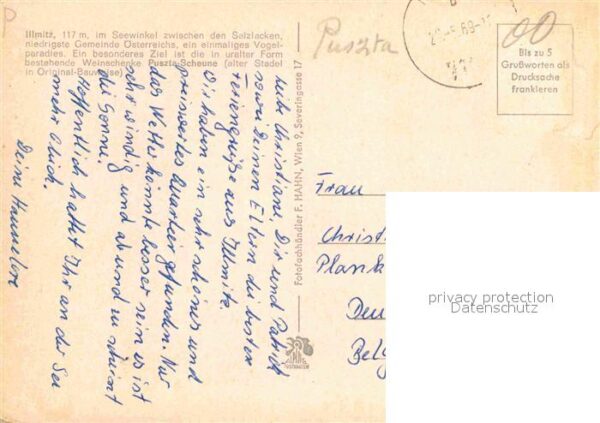 Illmitz, 117 m, im Seewinkel zwischen den Salzlacken,
niedrigste Gemeinde Österreichs, ein einmaliges Vogel-
paradies. Ein besonderes Ziel ist die in uralter Form
bestehende Weinschenke Puszta-Scheune (alter Stadel
in Original-Bauweise)
Puszta
Bis zu 5
Grußworten als
Drucksache
frankieren
00
Christiane, Dir und Patrick
sowie Deinen Eltern die besten
Feriengrüße aus Illmitz.
Wir haben ein sehr schönes und
preiswertes Quartier gefunden. Nur
das Wetter könnte besser sein, es ist
sehr windig und ab und zu scheint
die Sonne.
Hoffentlich hattet Ihr an der See
mehr Glück.
Deine Hannelore
Fotofachhändler F. HAHN, Wien 9, Severingasse 17
Frau
Christ
Plank
Den
Belg
privacy protection
Datenschutz